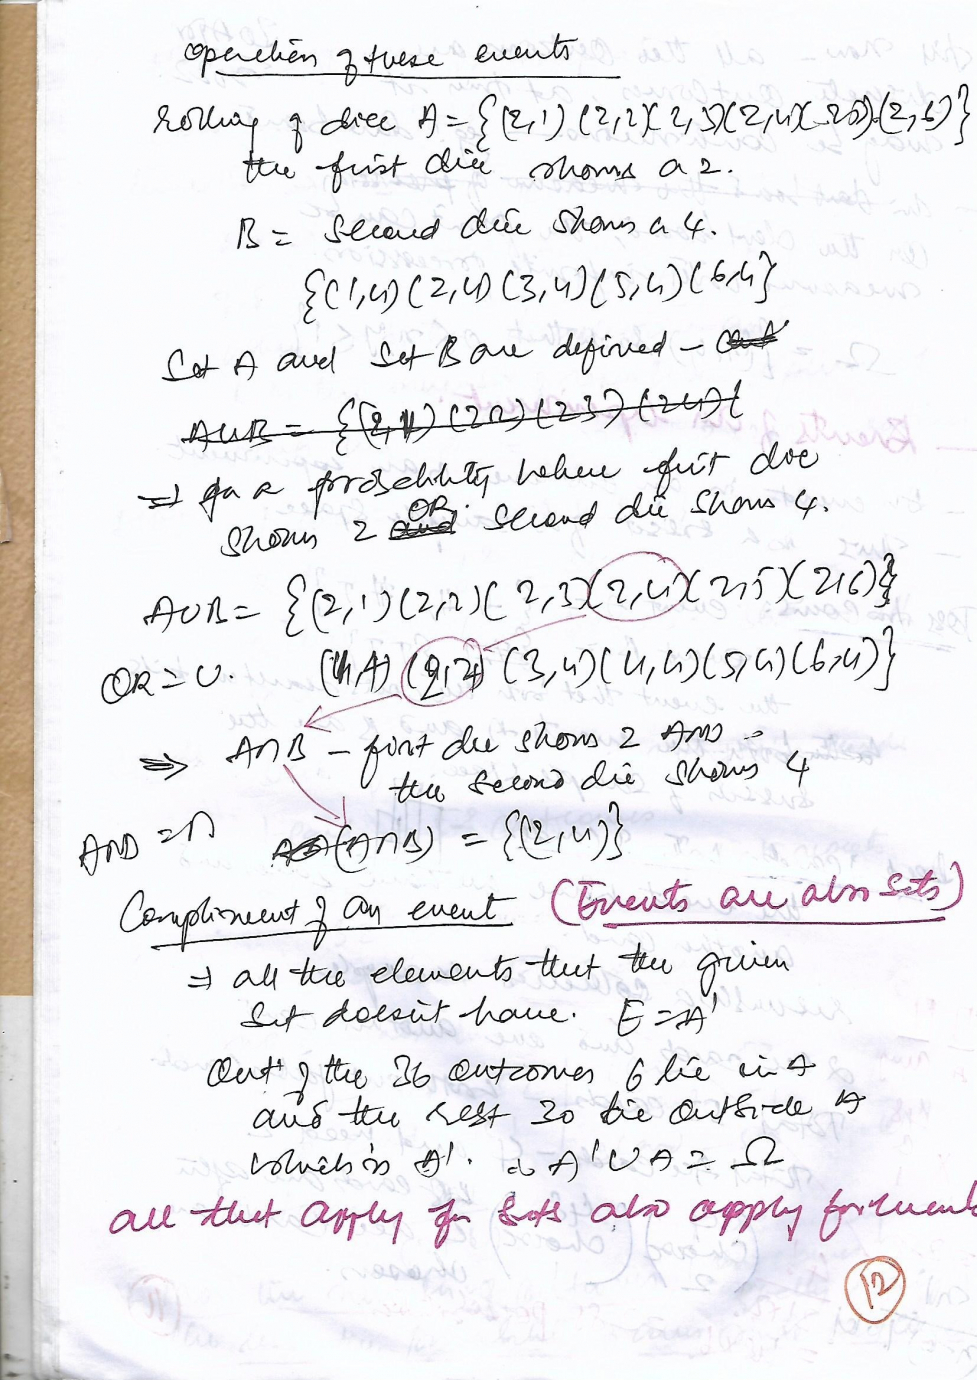 Operation of these events
Rolling of dice A = {(2,1) (2,2)(2,3)(2,4)(2,5).(2,6)}
the first die shows a 2.
B = Second die shows a 4.
{(1,4)(2,4)(3,4)(5,4)(6,4}
Set A and Set B are defined –
AUB = {(2,1)(22)(23)(24)(
⇒ for a probability where first die
shows 2 and OR second die shows 4.
AUB = {(2,1)(2,2)(2,3)(2,4)(2,5)(2,6)}
OR = U. (1,4) (2,4) (3,4)(4,4)(5,4)(6,4)}
⇒ A∩B – first die shows 2 AND –
the second die shows 4
AND = ∩ (A∩B) = {(2,4)}
Compliment of an event (Events are also Sets)
⇒ all the elements that the given
Set doesn't have. E = A'
Out of the 36 outcomes 6 lie in A
and the rest 30 lie outside A
which is A'. ∴ A'UA = Ω
all that apply for Sets also apply for events
12